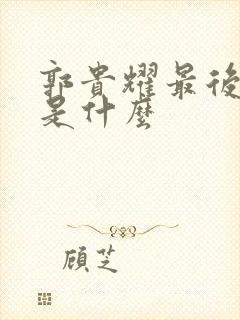 郭貴耀最後
是什麼
顧芝